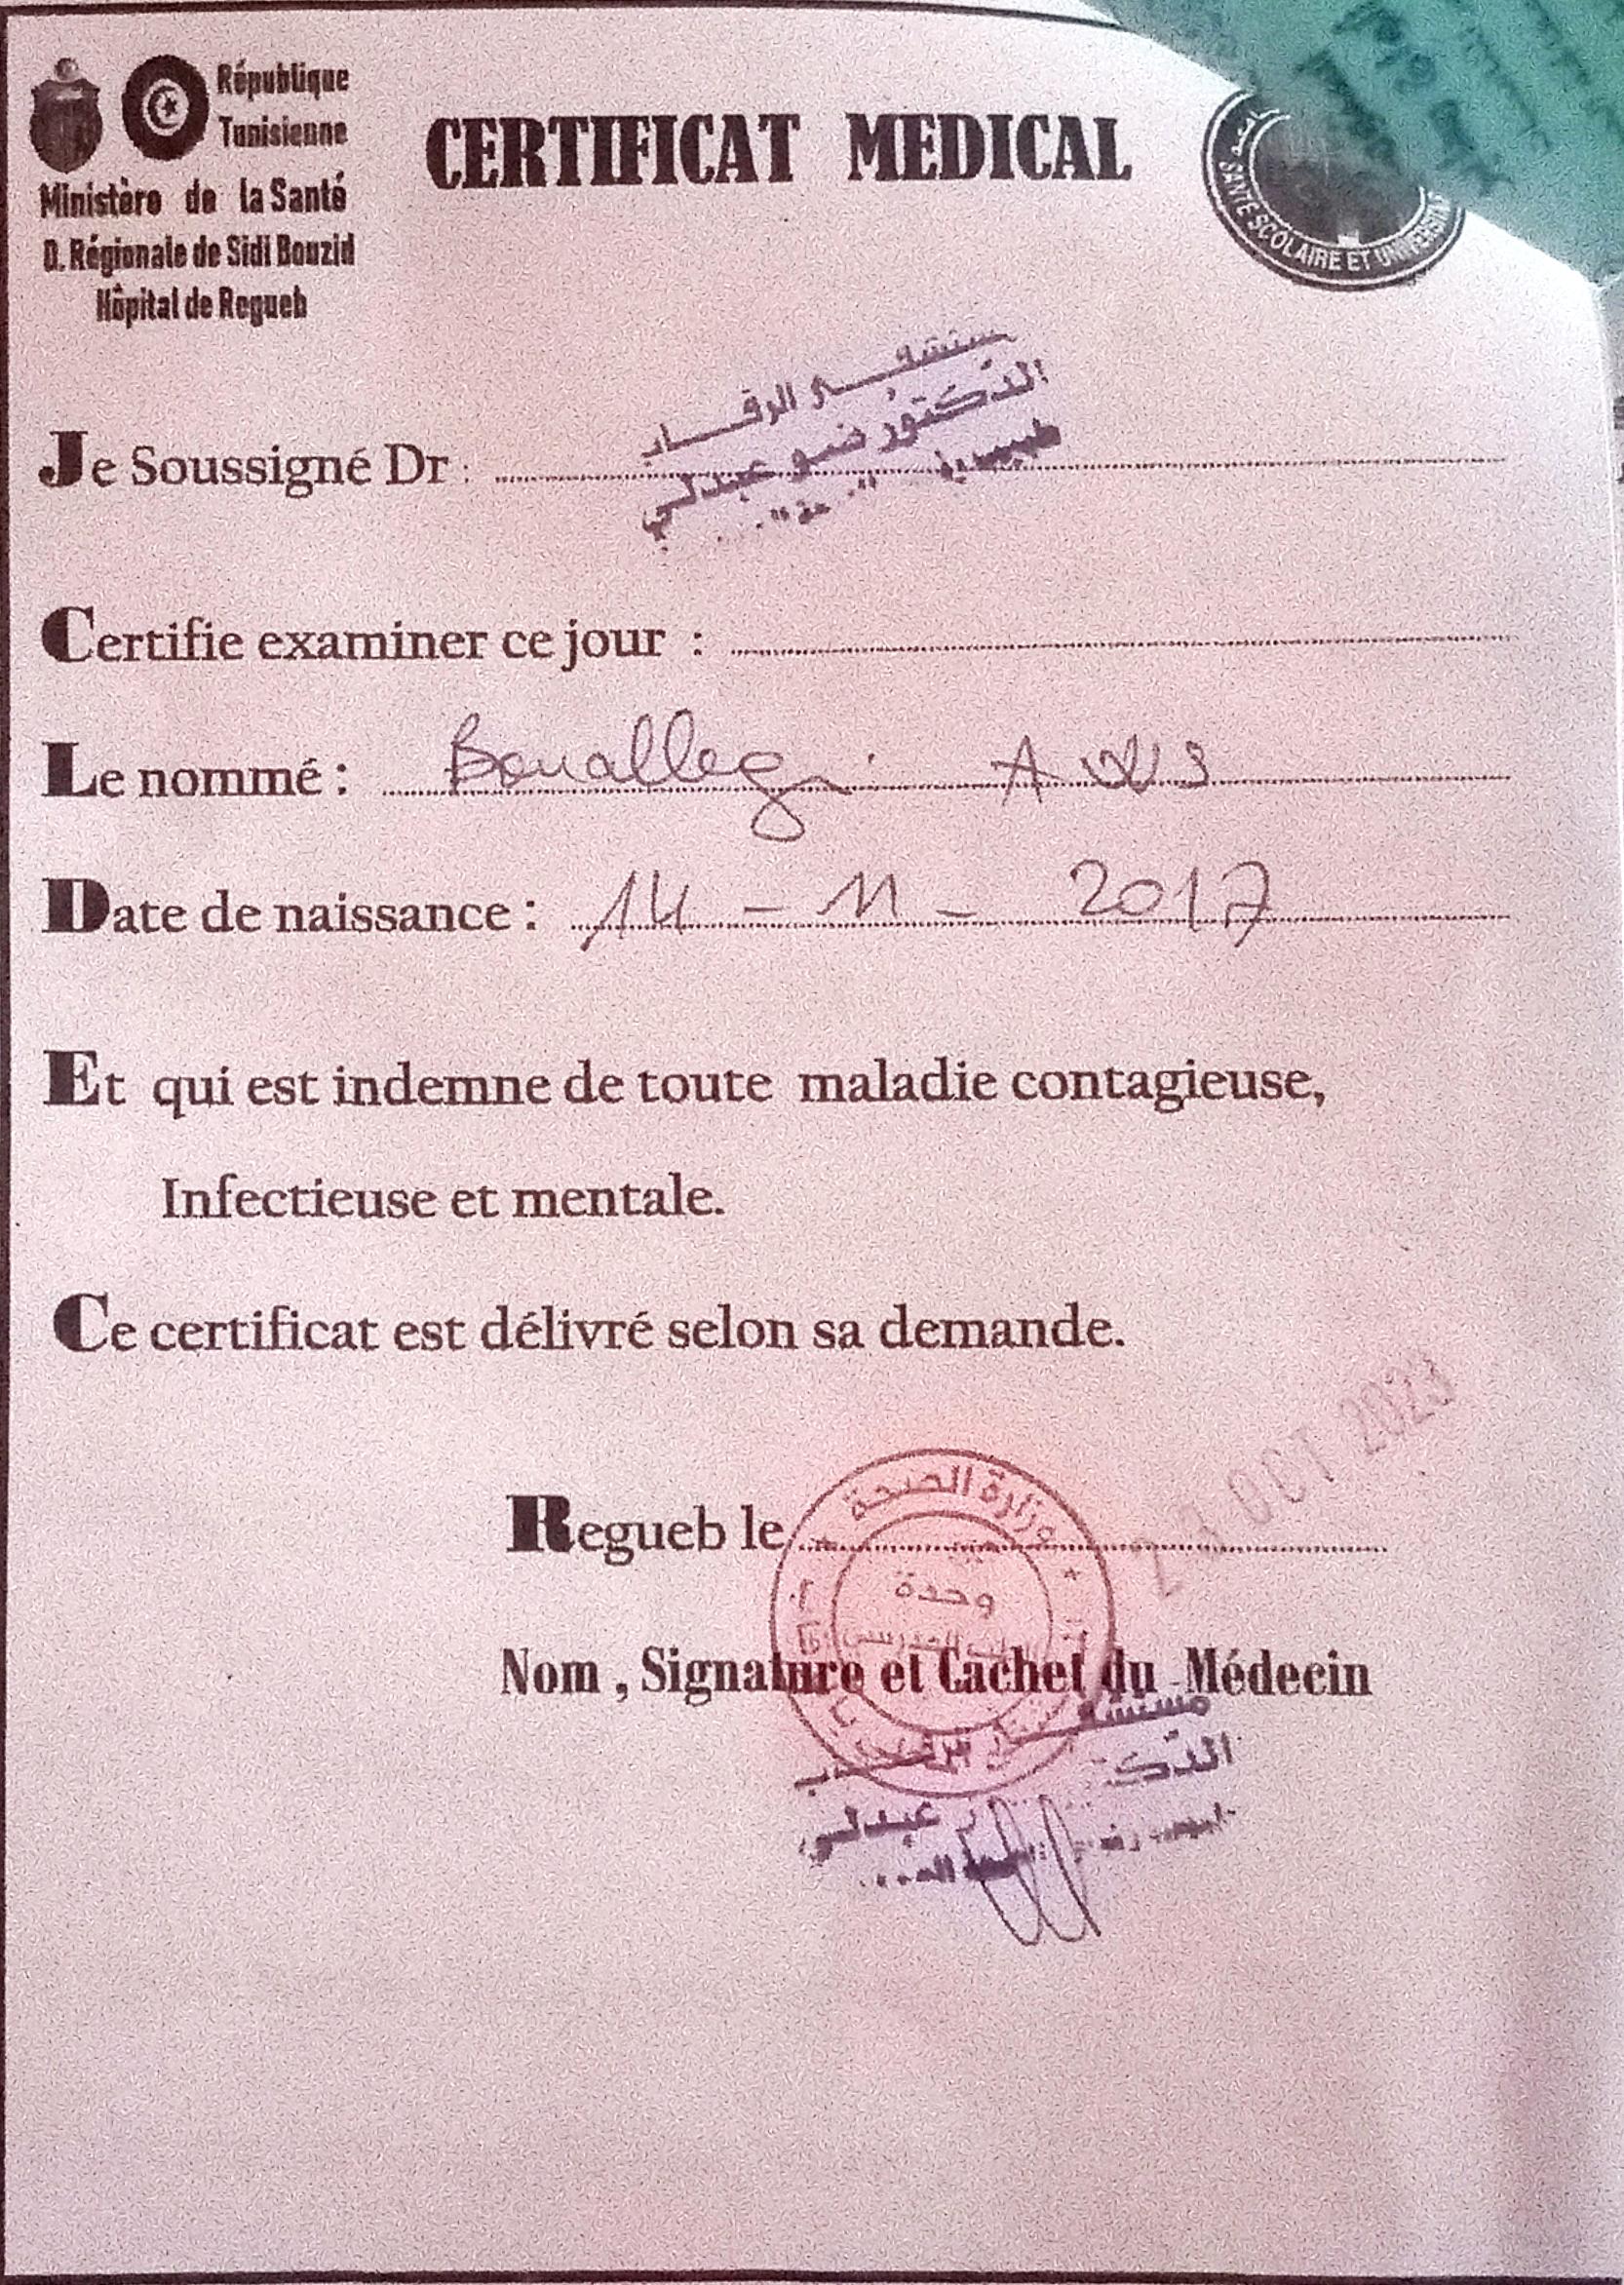 République
Tunisienne
Ministère de la Santé
D. Régionale de Sidi Bouzid
Hôpital de Regueb
CERTIFICAT MEDICAL
SANTE SCOLAIRE ET
Je Soussigné Dr :
مستشفى الرقاب
الدكتور ضو عبدلي
Certifie examiner ce jour :
Le nommé : Bouallegi
Date de naissance : 14 - 11 - 2017
Et qui est indemne de toute maladie contagieuse,
Infectieuse et mentale.
Ce certificat est délivré selon sa demande.
OCT
Regueb le
وزارة الصحة
وحدة
Nom , Signature et Cachet du Médecin
مستشفى الرقاب
عبدلي